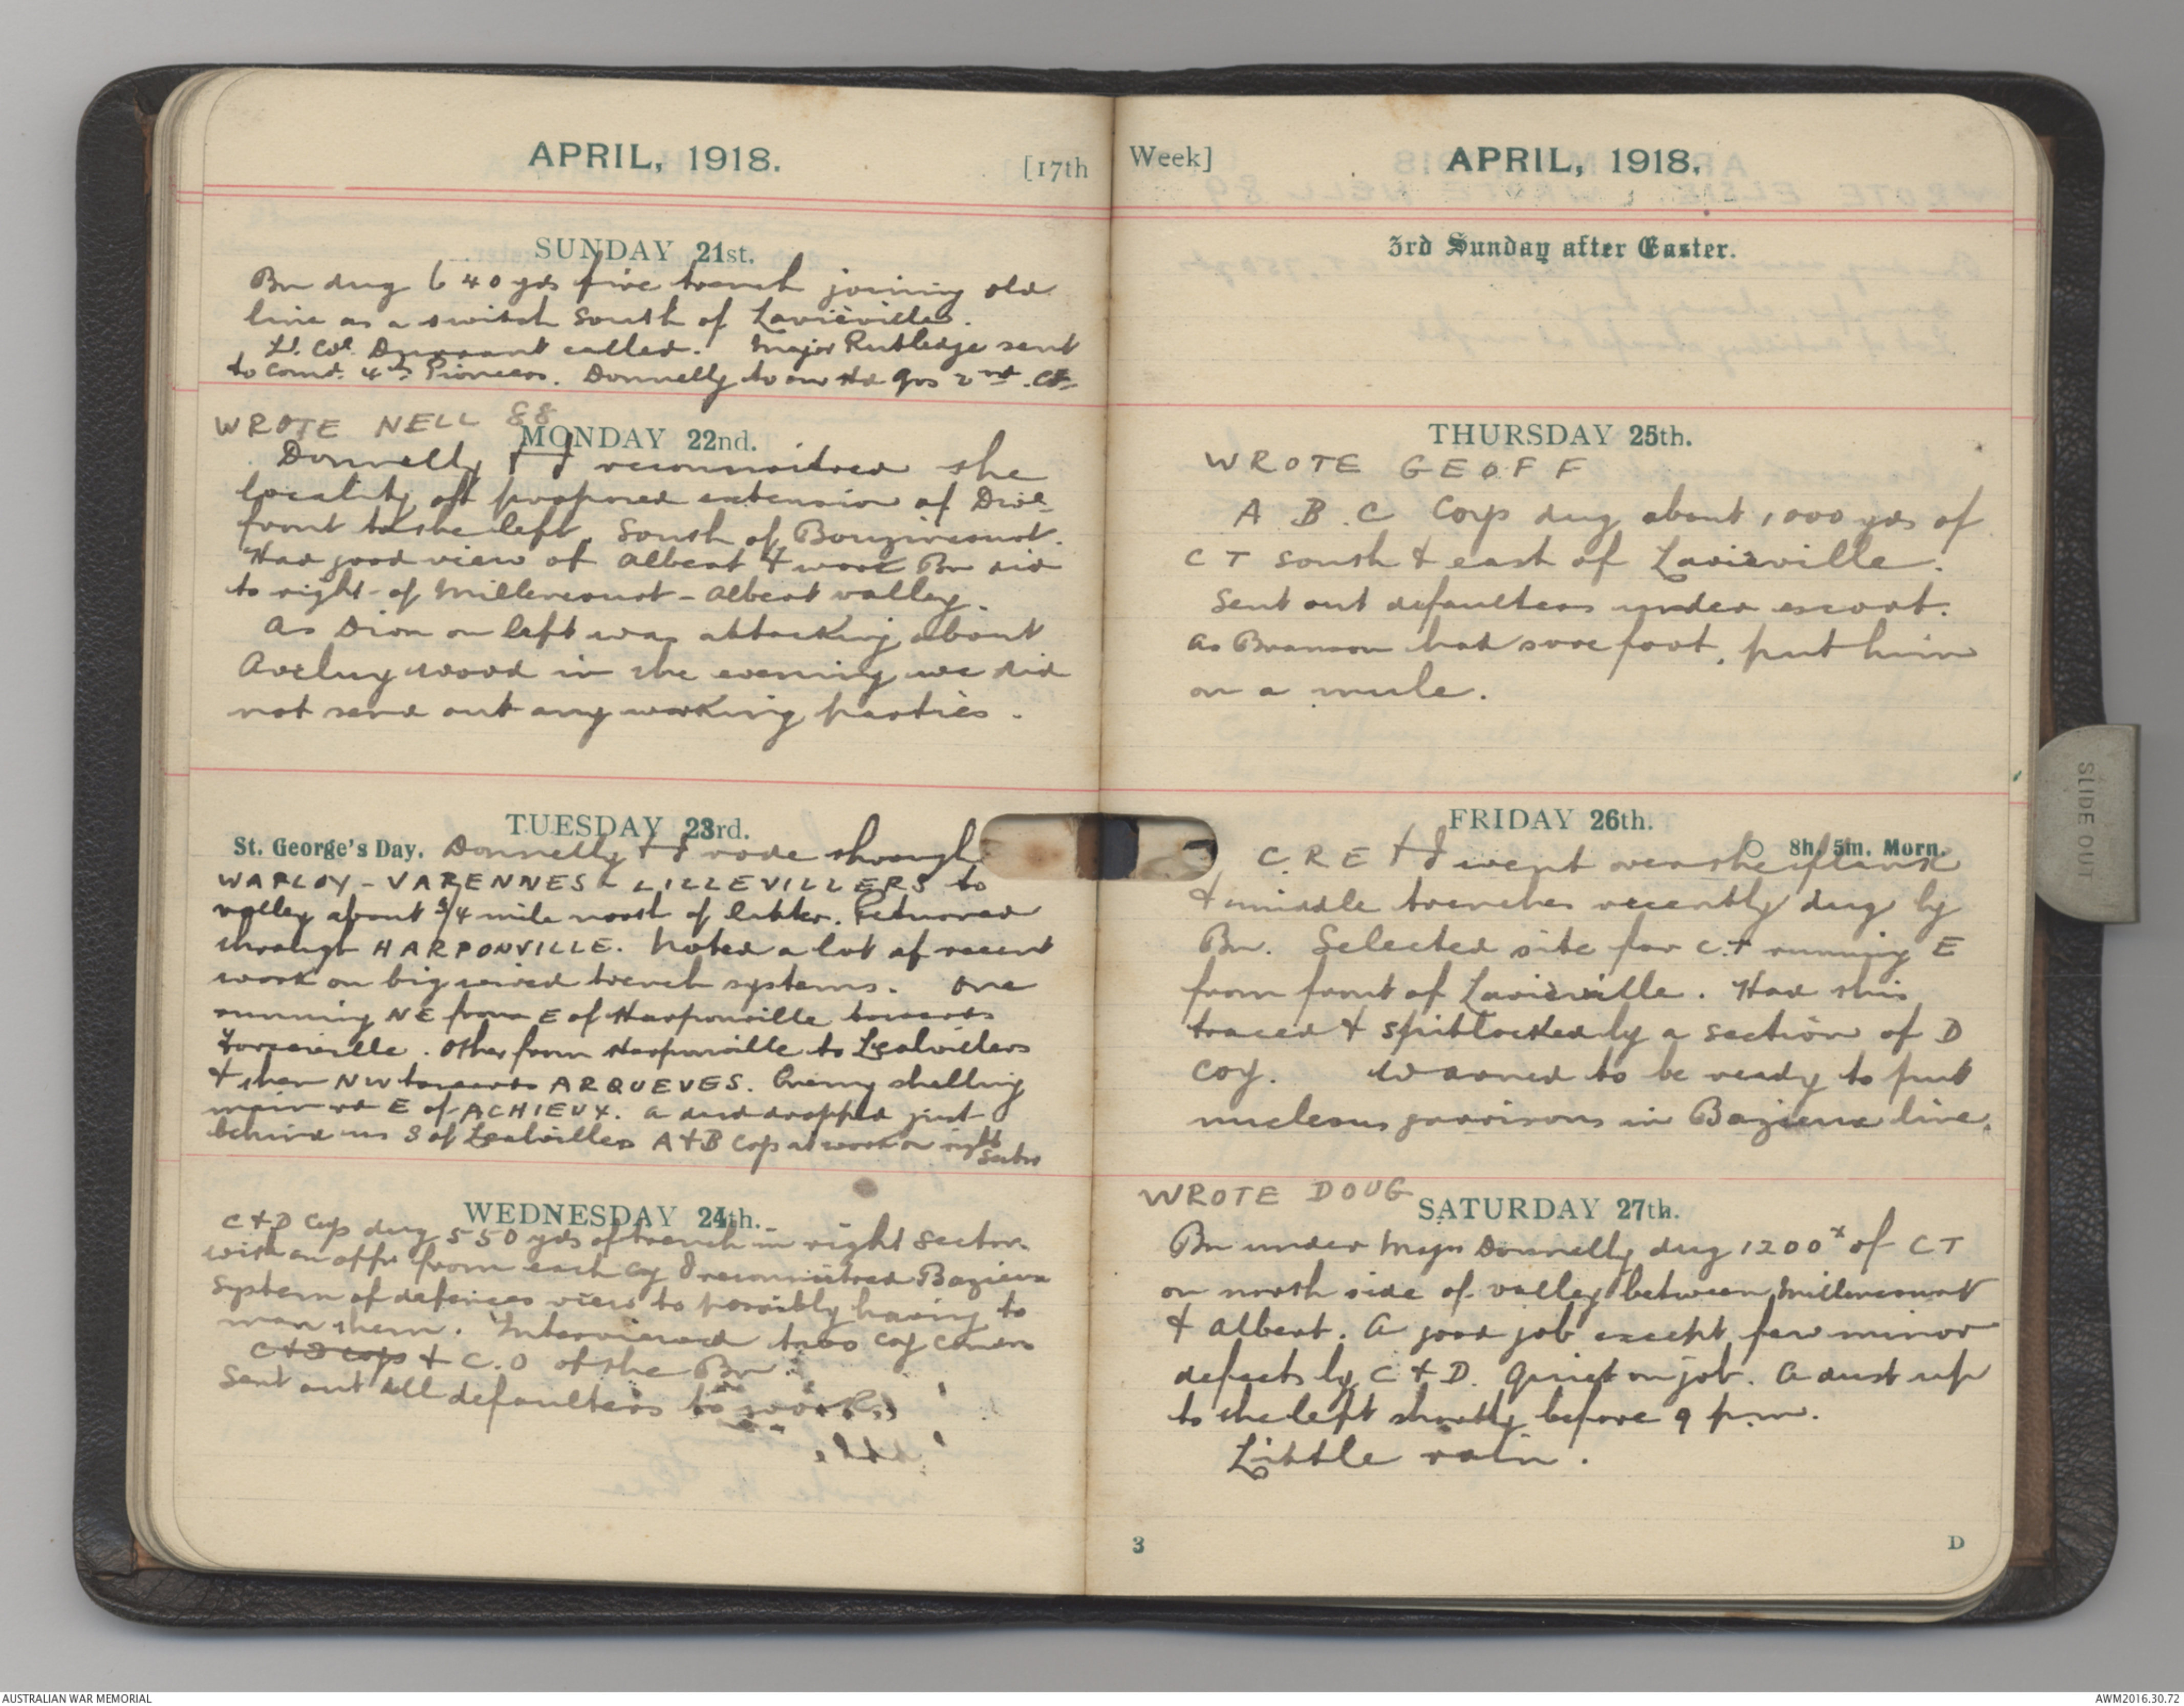 APRIL, 1918.
[17th
SUNDAY 21st.
Bn dug 640 yds fire trench joining old
line as a switch South of Laviéville.
Lt. Col. Durrant called. Major Rutledge sent
to comd. 4th Pioneers. Donnelly to our Hd Qrs 2nd.
WROTE NELL 88
MONDAY 22nd.
Donnelly & I reconnoitred the
locality of proposed extension of Divl
front to the left. South of Bouzincourt.
Had good view of Albert & work Bn did
to right of Millencourt - Albert valley.
As Divn on left was attacking about
Aveluy wood in the evening we did
not send out any working parties.
TUESDAY 23rd.
St. George's Day. Donnelly & I rode through
WARLOY - VARENNES - LILLEVILLERS to
valley about 3/4 mile north of latter. Returned
through HARPONVILLE. Noted a lot of recent
work on big wired trench systems. One
running NE from E of Harponville towards
Forceville. Other from Harponville to Lealvillers
& then NW towards ARQUEVES. Enemy shelling
main rd E of ACHIEUX. A dud dropped just
behind us S of Lealvillers A & B Coys at work on right
Sector
WEDNESDAY 24th.
C & D Coys dug 550 yds of trench in right Sector.
with an offr from each coy I reconnoitred Bazieux
System of defences view to possibly having to
man them. Interviewed two coy comdrs
C & D coys & C.O of the Bn.
Sent out all defaulters to work.
Week]
APRIL, 1918.
3rd Sunday after Easter.
THURSDAY 25th.
WROTE GEOFF
A B.C Coys dug about 1000 yds of
CT south & east of Laviéville.
Sent out defaulters under escort.
As Branson had sore foot, put him
on a mule.
FRIDAY 26th.
8h. 5m. Morn.
C.R.E & I went over the flank
& middle trenches recently dug by
Bn. Selected site for C.T running E
from front of Laviéville. Had this
traced & spitlocked by a section of D
Coy. Warned to be ready to put
nucleus garrisons in Bazieux line.
WROTE DOUG
SATURDAY 27th.
Bn under Major Donnelly dug 1200x of CT
on north side of valley between Millencourt
& Albert. A good job except few minor
defects by C & D. Quiet on job. A dust up
to the left shortly before 9 p.m.
Little rain.
3
D
SLIDE OUT
AUSTRALIAN WAR MEMORIAL
AWM2016.30.72